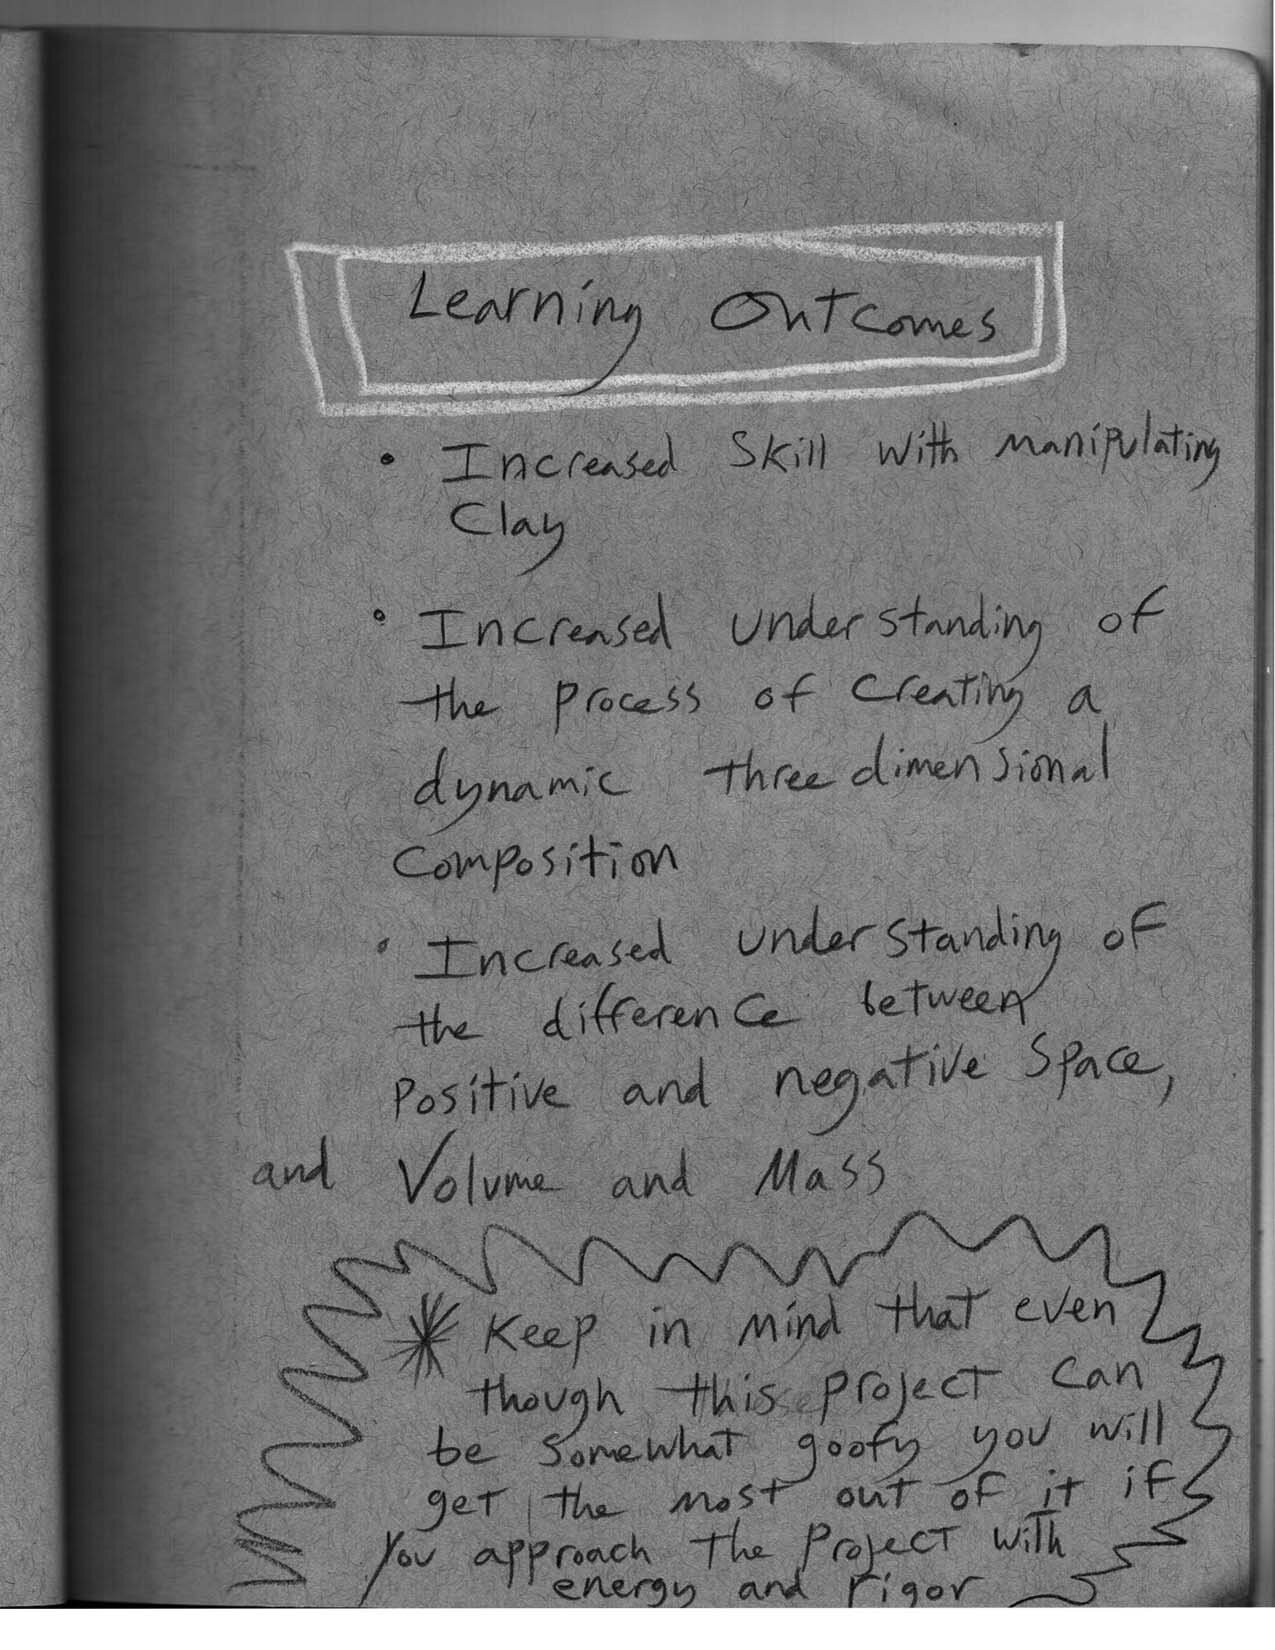 Learning Outcomes
• Increased Skill with manipulating
Clay
• Increased understanding of
the process of creating a
dynamic three dimensional
composition
• Increased understanding of
the difference between
Positive and negative Space,
and Volume and Mass
* Keep in mind that even
though this project can
be somewhat goofy you will
get the most out of it if
You approach the project with
energy and rigor